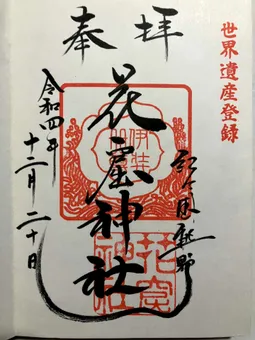 世界遺産登録
奉拝
熊野
花窟神社
令和四年
十二月二十日
花窟
神社